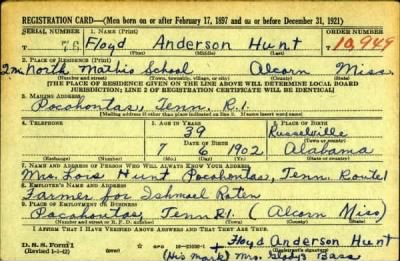 REGISTRATION CARD—(Men born on or after February 17, 1897 and on or before December 31, 1921)
SERIAL NUMBER 1. NAME (Print) ORDER NUMBER
T 76 Floyd Anderson Hunt 10,949
(First) (Middle) (Last)
2. PLACE OF RESIDENCE (Print)
2m North Mathis School Alcorn Miss.
(Number and street) (Town, township, village, or city) (County) (State)
[THE PLACE OF RESIDENCE GIVEN ON THE LINE ABOVE WILL DETERMINE LOCAL BOARD
JURISDICTION; LINE 2 OF REGISTRATION CERTIFICATE WILL BE IDENTICAL]
3. MAILING ADDRESS
Pocohontas, Tenn. R.1.
[Mailing address if other than place indicated on line 2. If same insert word same]
4. TELEPHONE 5. AGE IN YEARS 6. PLACE OF BIRTH
39 Russelville
DATE OF BIRTH (Town or county)
7 6 1902 Alabama
(Exchange) (Number) (Mo.) (Day) (Yr.) (State or country)
7. NAME AND ADDRESS OF PERSON WHO WILL ALWAYS KNOW YOUR ADDRESS
Mrs. Lois Hunt Pocohontas, Tenn. Route 1
8. EMPLOYER'S NAME AND ADDRESS
Farmer for Ishmael Raten
9. PLACE OF EMPLOYMENT OR BUSINESS
Pocahontas, Tenn R1. (Alcorn Miss)
(Number and street or R. F. D. number) (Town) (County) (State)
I AFFIRM THAT I HAVE VERIFIED ABOVE ANSWERS AND THAT THEY ARE TRUE.
D. S. S. Form 1
(Revised 1-1-42) (over)
+ Floyd Anderson Hunt
(Registrant's signature)
(His mark) Mrs. Gladys Bass